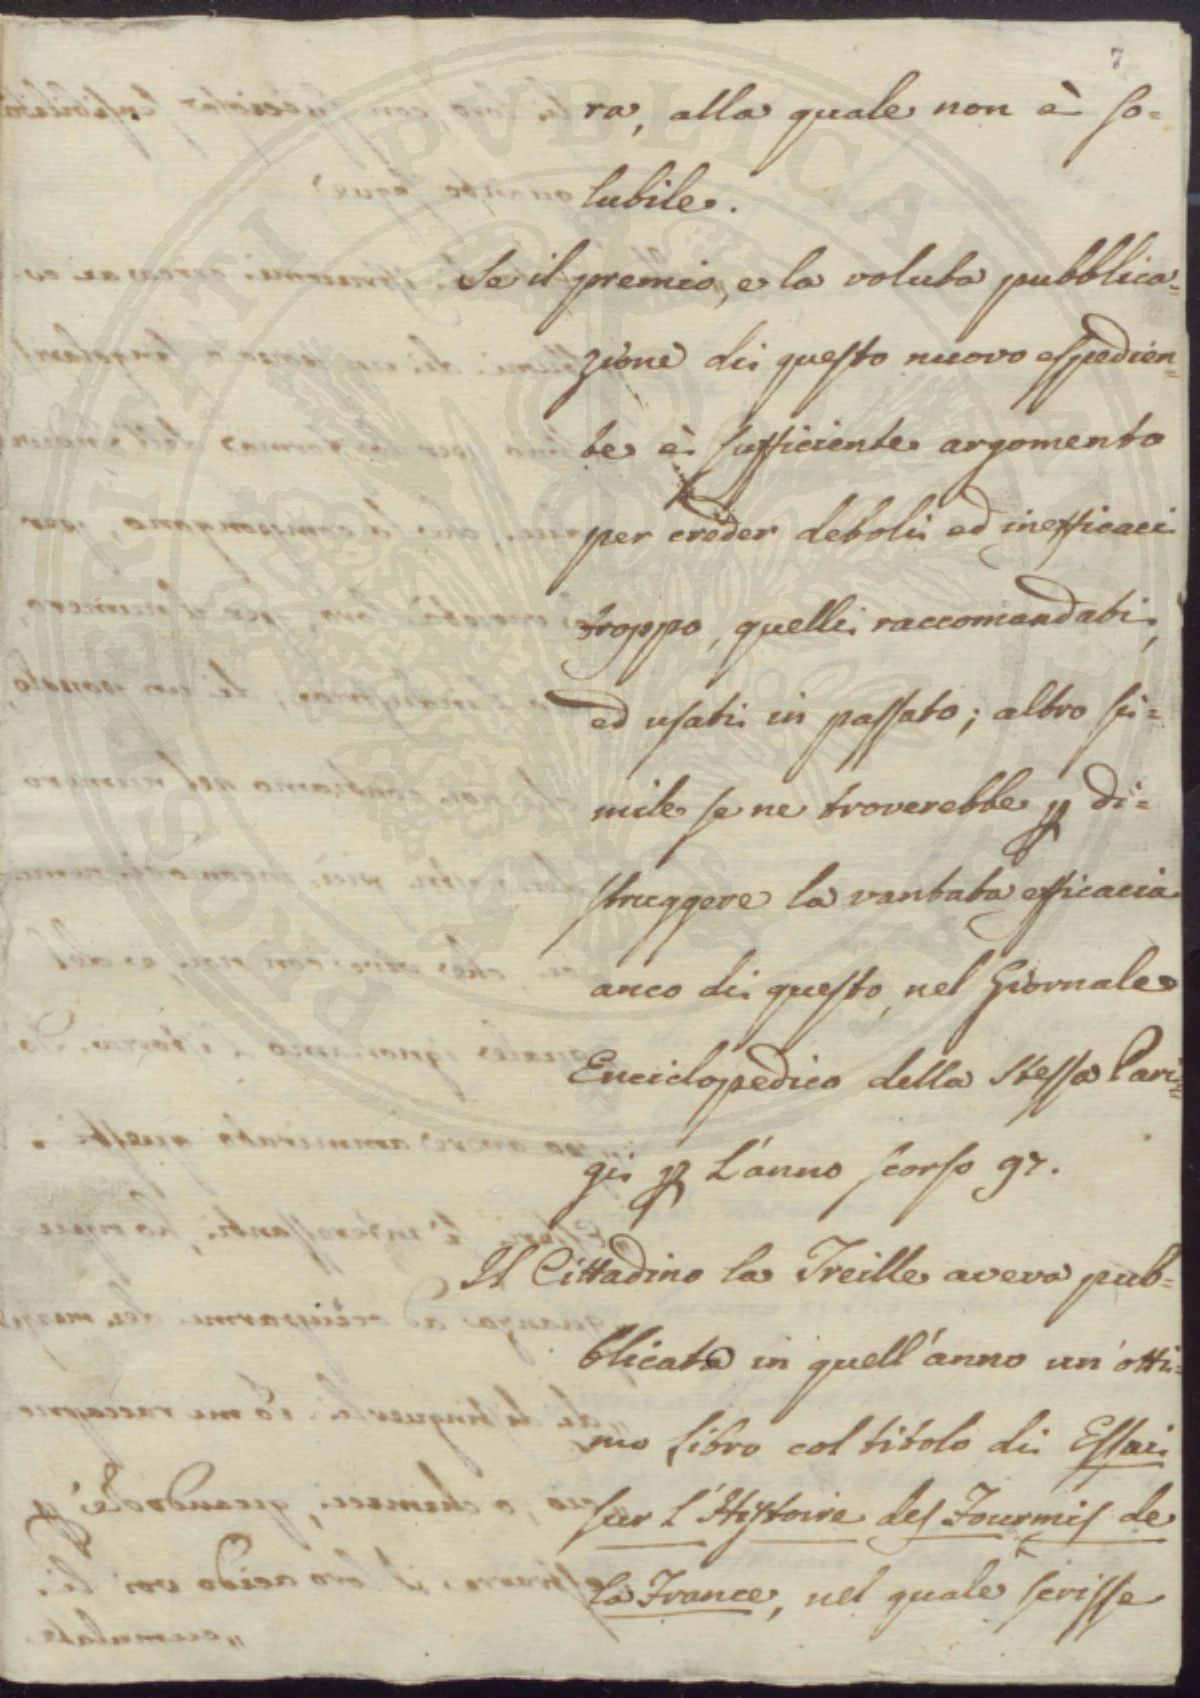 7
ra, alla quale non è so=
lubile.
Se il premio, e la voluta pubblica=
zione di questo nuovo espedien=
te è sufficiente argomento
per creder deboli ed inefficaci
troppo, quelli raccomandati,
ed usati in passato; altro si=
mile se ne troverebbe p di=
struggere la vantata efficacia
anco di questo, nel Giornale
Enciclopedico della stessa Pari=
gi p l'anno scorso 97.
Il Cittadino la Treille aveva pub=
blicato in quell'anno un'otti=
mo libro col titolo di Essai
sur l'Histoire des Fourmis de
la France, nel quale scrisse